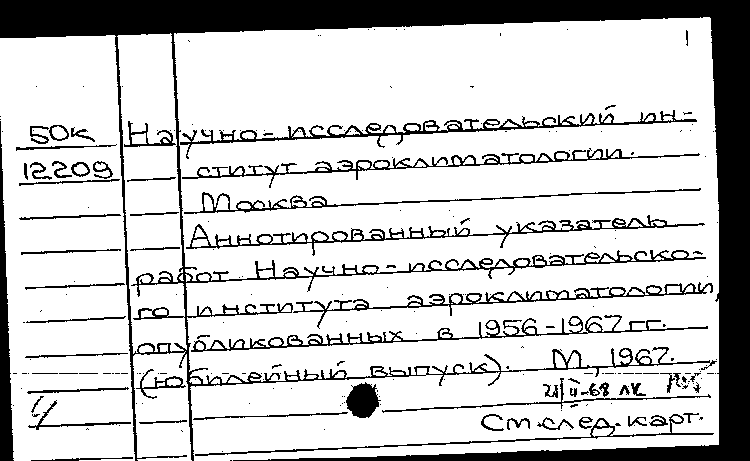 1
50к Научно=исследовательский ин=
12209 ститут аэроклиматологии.
Москва
Аннотированный указатель
работ Научно=исследовательско=
го института аэроклиматологии,
опубликованных в 1956-1967 гг.
(юбилейный выпуск). М., 1967.
См.след.карт.